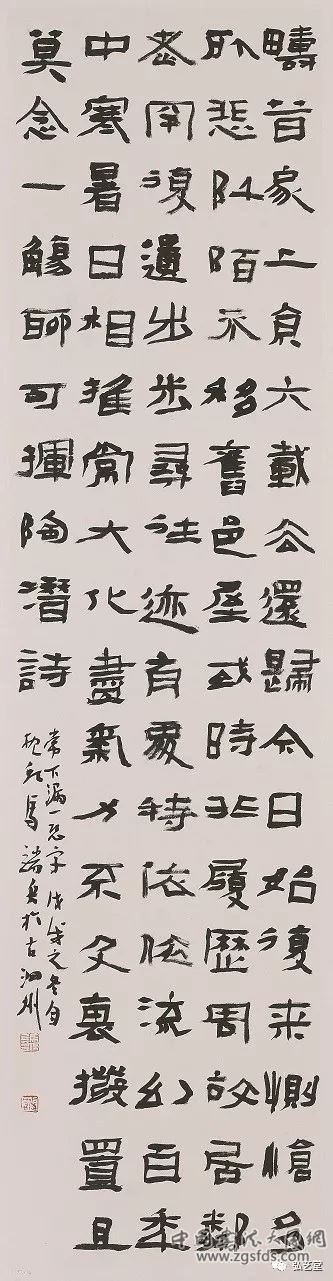 疇昔家上京六載去還歸今日始復来惻愴多
所悲阡陌不移舊邑屋或時非履歷周故居鄰
老罕復遺步步尋往迹有處特依依流幻百年
中寒暑日相推常大化盡氣力不及衰撥置且
莫念一觴聊可揮陶潛詩
常下漏一恐字 戊戌之冬自
馬 於古泗州
中国书法大展网
www.zgsfds.com
弘艺堂